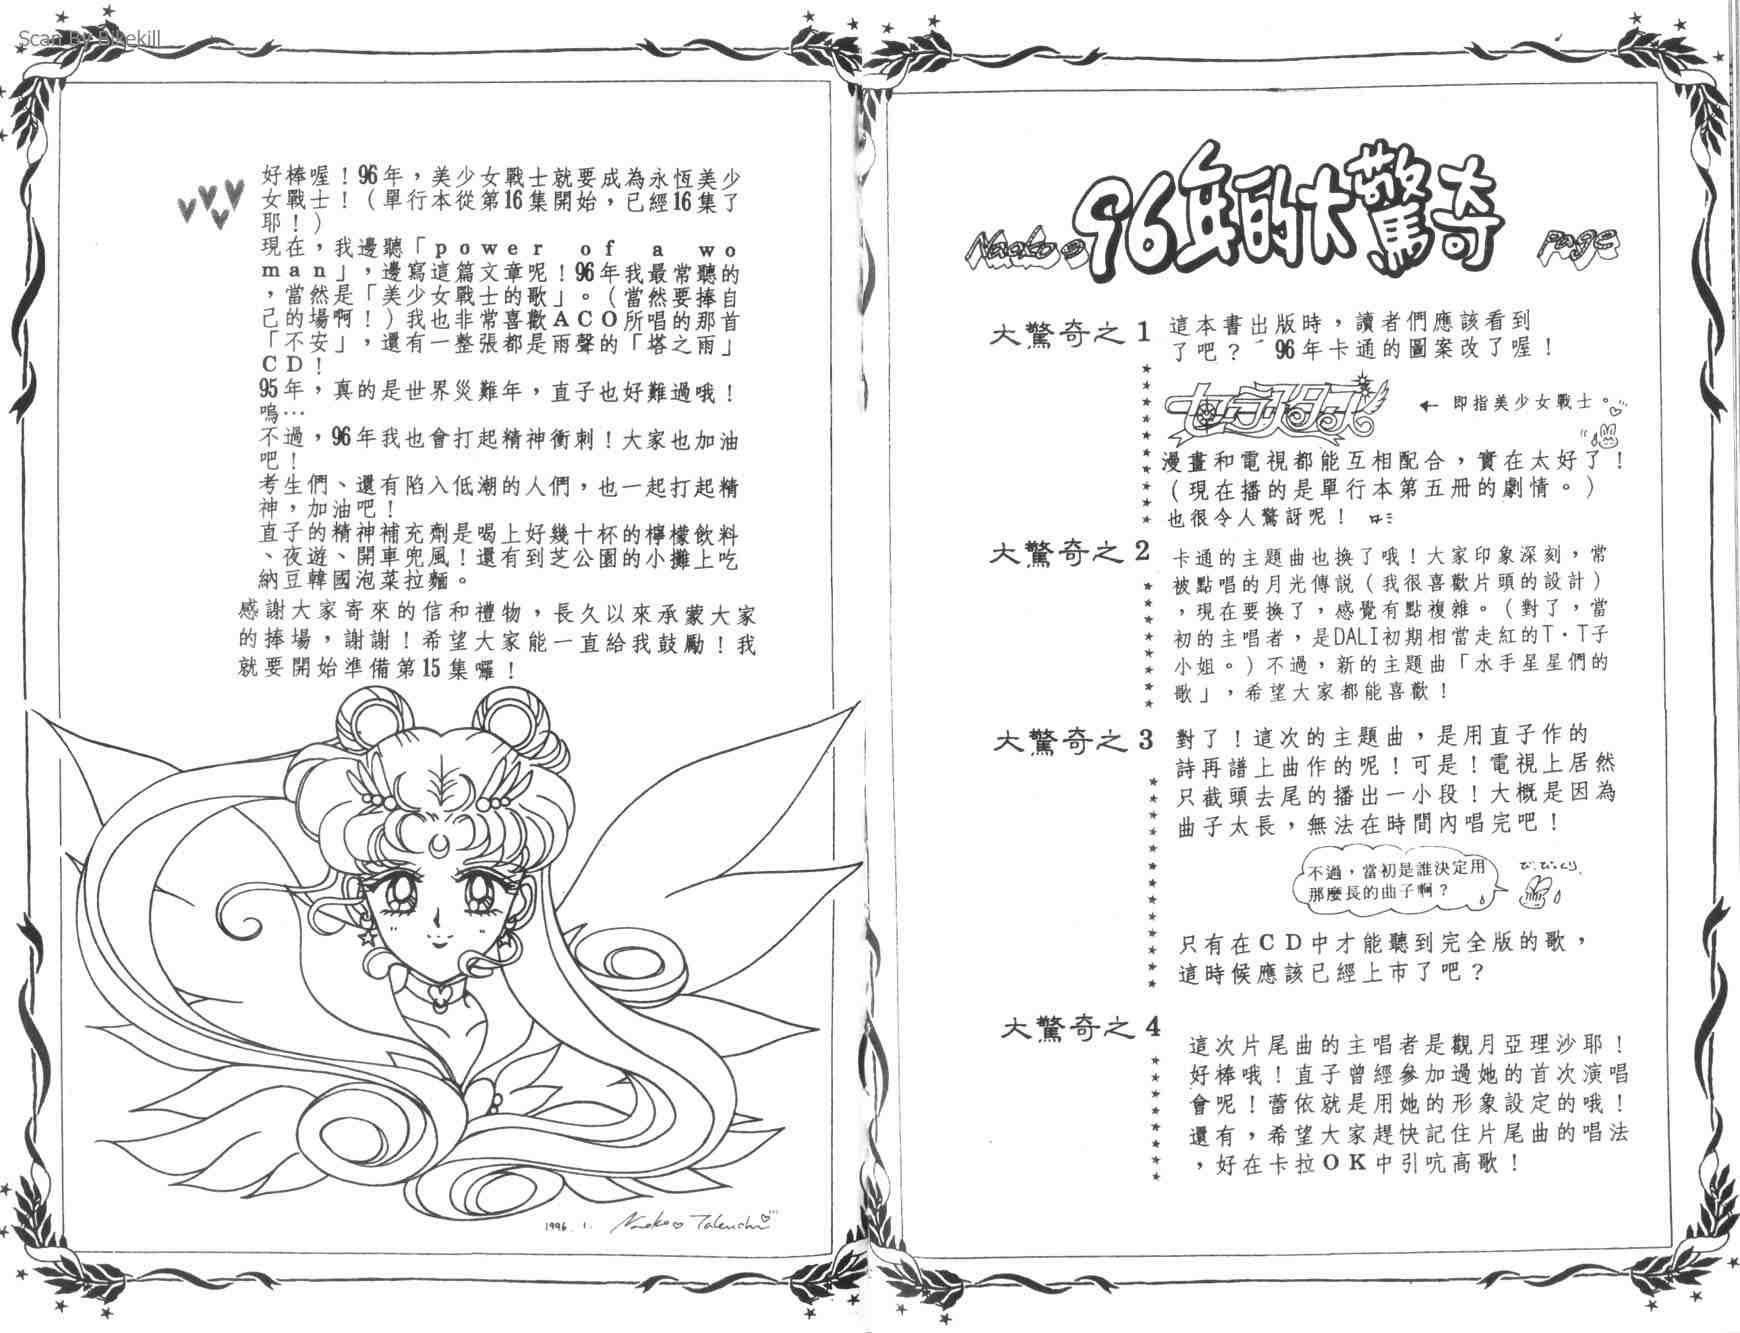 Scan By Eikekill
好棒喔！96年，美少女戰士就要成為永恆美少
女戰士！（單行本從第16集開始，已經16集了
耶！）
現在，我邊聽「power of a wo
man」，邊寫這篇文章呢！96年我最常聽的
，當然是「美少女戰士的歌」。（當然要捧自
己的場啊！）我也非常喜歡ACO所唱的那首
「不安」，還有一整張都是雨聲的「塔之雨」
CD！
95年，真的是世界災難年，直子也好難過哦！
嗚…
不過，96年我也會打起精神衝刺！大家也加油
吧！
考生們、還有陷入低潮的人們，也一起打起精
神，加油吧！
直子的精神補充劑是喝上好幾十杯的檸檬飲料
、夜遊、開車兜風！還有到芝公園的小攤上吃
納豆韓國泡菜拉麵。
感謝大家寄來的信和禮物，長久以來承蒙大家
的捧場，謝謝！希望大家能一直給我鼓勵！我
就要開始準備第15集囉！
1996. 1. Naoko Takeuchi
Naoko の 96年的大驚奇 Page
大驚奇之1
這本書出版時，讀者們應該看到
了吧？ 96年卡通的圖案改了喔！
セーラームーン
← 即指美少女戰士。
漫畫和電視都能互相配合，實在太好了！
（現在播的是單行本第五冊的劇情。）
也很令人驚訝呢！
大驚奇之2
卡通的主題曲也換了哦！大家印象深刻，常
被點唱的月光傳説（我很喜歡片頭的設計）
，現在要換了，感覺有點複雜。（對了，當
初的主唱者，是DALI初期相當走紅的T·T子
小姐。）不過，新的主題曲「水手星星們的
歌」，希望大家都能喜歡！
大驚奇之3
對了！這次的主題曲，是用直子作的
詩再譜上曲作的呢！可是！電視上居然
只截頭去尾的播出一小段！大概是因為
曲子太長，無法在時間內唱完吧！
不過，當初是誰決定用
那麼長的曲子啊？
びっくり
只有在CD中才能聽到完全版的歌，
這時候應該已經上市了吧？
大驚奇之4
這次片尾曲的主唱者是觀月亞理沙耶！
好棒哦！直子曾經參加過她的首次演唱
會呢！蕾依就是用她的形象設定的哦！
還有，希望大家趕快記住片尾曲的唱法
，好在卡拉OK中引吭高歌！